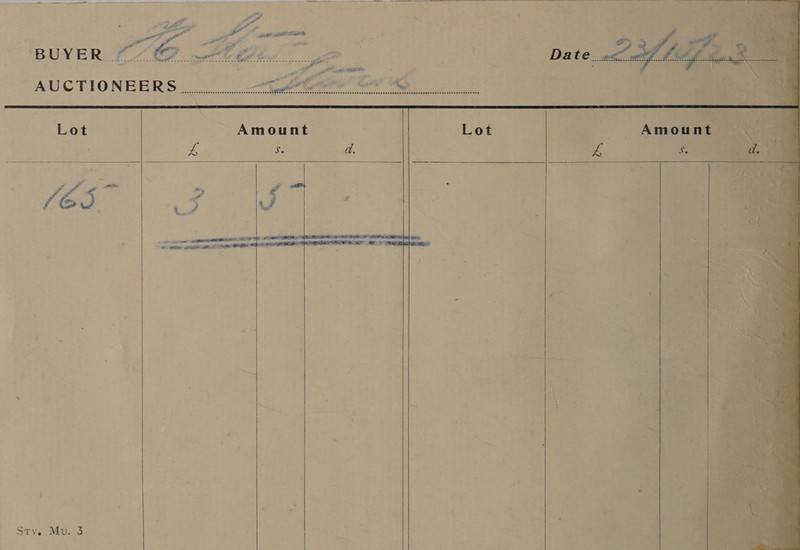 BUYER H Stow Date 23/10/23
AUCTIONEERS Stevens
Lot Amount Lot Amount
£ s. d. £ s. d.
165 3 5 .
Sty. Mu. 3